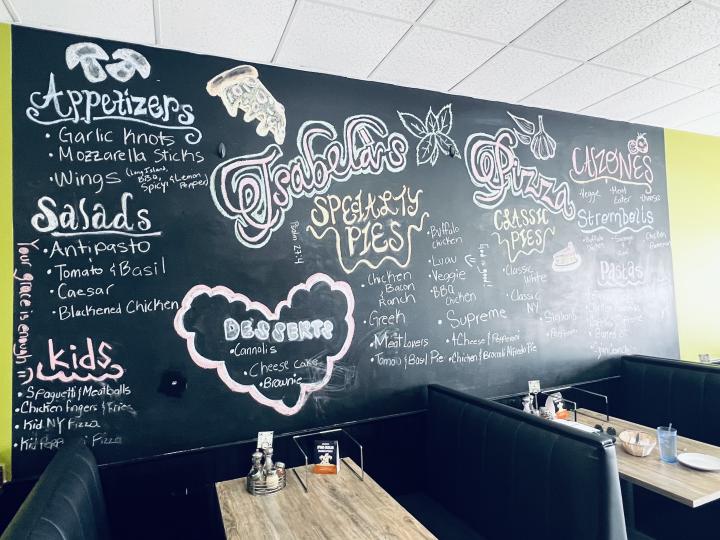 Appetizers
• Garlic Knots
• Mozzarella Sticks
• Wings (Long Island, BBQ, Spicy, & Lemon Pepper)
Salads
• Antipasto
• Tomato & Basil
• Caesar
• Blackened Chicken
Your grace is enough
kids
• Spaguetti & Meatballs
• Chicken fingers & Fries
• Kid NY Pizza
• Kid Pizza
Isabela's Pizza
Psalm 23:4
DESSERTS
• Cannolis
• Cheese Cake
• Brownie
SPECIALTY
PIES
• Chicken
Bacon
Ranch
• Greek
• Meat Lovers
• Tomato & Basil Pie
• Buffalo
Chicken
• Luau
• Veggie
• BBQ
Chicken
• Supreme
• 4 Cheese & Pepperoni
• Chicken & Broccoli Alfredo Pie
God is good!
CLASSIC
PIES
• Classic
White
• Classic
NY
• Sicilian
CALZONES
• Veggie
• Meat
Eater
Strombolis
Chicken
Pastas